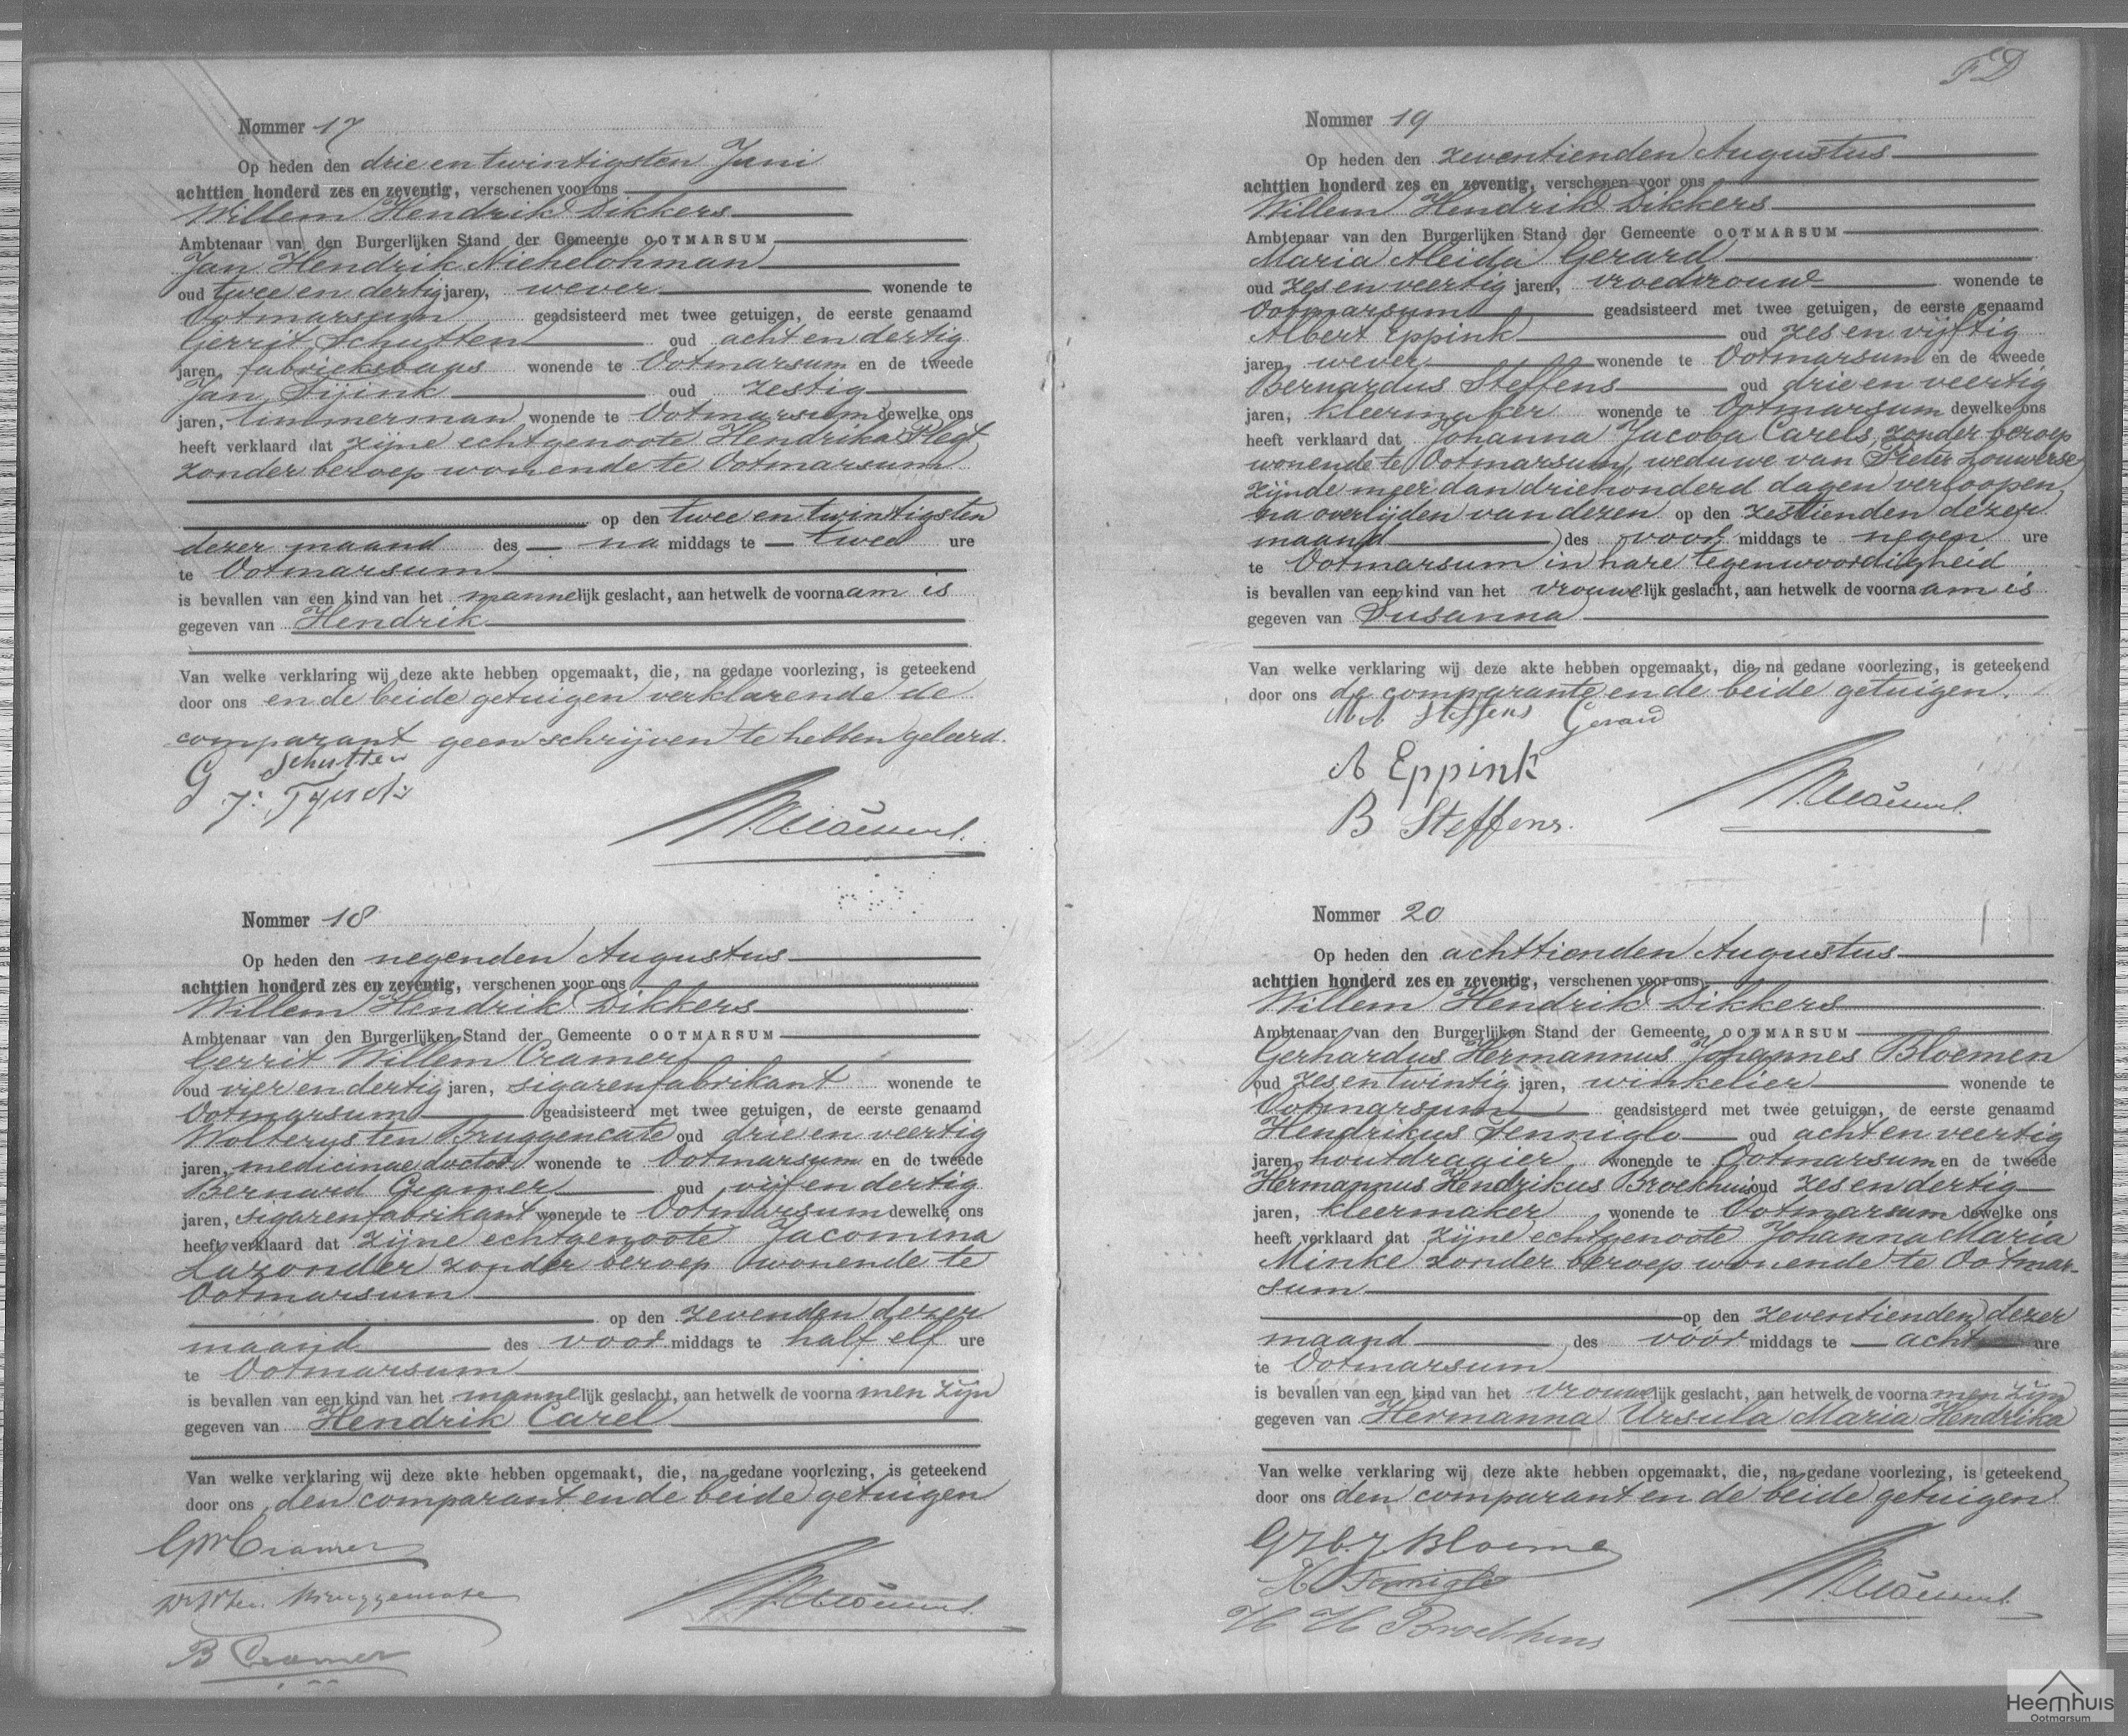 Nommer 17
Op heden den drie en twintigsten Juni
achttien honderd zes en zeventig, verschenen voor ons
Willem Hendrik Dikkers
Ambtenaar van den Burgerlijken Stand der Gemeente OOTMARSUM
Jan Hendrik Niehelohman
oud twee en dertig jaren, wever wonende te
Ootmarsum geadsisteerd met twee getuigen, de eerste genaamd
Gerrit Schutten oud acht en dertig
jaren, fabrieksbaas wonende te Ootmarsum en de tweede
Jan Tijink oud zestig
jaren, timmerman wonende te Ootmarsum dewelke ons
heeft verklaard dat zijne echtgenoote Hendrika Plegt
zonder beroep wonende te Ootmarsum
op den twee en twintigsten
dezer maand des na middags te twee ure
te Ootmarsum
is bevallen van een kind van het mannelijk geslacht, aan hetwelk de voornaam is
gegeven van Hendrik
Van welke verklaring wij deze akte hebben opgemaakt, die, na gedane voorlezing, is geteekend
door ons en de beide getuigen verklarende de
comparant geen schrijven te hebben geleerd.
G Schutten
J: Tijink
Nommer 18
Op heden den negenden Augustus
achttien honderd zes en zeventig, verschenen voor ons
Willem Hendrik Dikkers
Ambtenaar van den Burgerlijken Stand der Gemeente OOTMARSUM
Gerrit Willem Cramer
oud vier en dertig jaren, sigarenfabrikant wonende te
Ootmarsum geadsisteerd met twee getuigen, de eerste genaamd
Wolterus ten Bruggencate oud drie en veertig
jaren, medicinae doctor wonende te Ootmarsum en de tweede
Bernard Cramer oud vijf en dertig
jaren, sigarenfabrikant wonende te Ootmarsum dewelke ons
heeft verklaard dat zijne echtgenoote Jacomina
Lazonder zonder beroep wonende te
Ootmarsum
op den zevenden dezer
maand des voor middags te half elf ure
te Ootmarsum
is bevallen van een kind van het mannelijk geslacht, aan hetwelk de voornamen zijn
gegeven van Hendrik Carel
Van welke verklaring wij deze akte hebben opgemaakt, die, na gedane voorlezing, is geteekend
door ons den comparant en de beide getuigen
GW Cramer
W ten Bruggencate
B Cramer
Nommer 19
Op heden den zeventienden Augustus
achttien honderd zes en zeventig, verschenen voor ons
Willem Hendrik Dikkers
Ambtenaar van den Burgerlijken Stand der Gemeente OOTMARSUM
Maria Aleida Gerard
oud zes en veertig jaren, vroedvrouw wonende te
Ootmarsum geadsisteerd met twee getuigen, de eerste genaamd
Albert Eppink oud zes en vijftig
jaren, wever wonende te Ootmarsum en de tweede
Bernardus Steffens oud drie en veertig
jaren, kleermaker wonende te Ootmarsum dewelke ons
heeft verklaard dat Johanna Jacoba Carels, zonder beroep
wonende te Ootmarsum, weduwe van Pieter Louwerse
zijnde meer dan driehonderd dagen verloopen
na overlijden van dezen op den zestienden dezer
maand des voor middags te negen ure
te Ootmarsum in hare tegenwoordigheid
is bevallen van een kind van het vrouwelijk geslacht, aan hetwelk de voornaam is
gegeven van Susanna
Van welke verklaring wij deze akte hebben opgemaakt, die, na gedane voorlezing, is geteekend
door ons de comparante en de beide getuigen.
M A Steffens Gerard
A Eppink
B Steffens.
Nommer 20
Op heden den achttienden Augustus
achttien honderd zes en zeventig, verschenen voor ons
Willem Hendrik Dikkers
Ambtenaar van den Burgerlijken Stand der Gemeente OOTMARSUM
Gerhardus Hermannus Johannes Bloemen
oud zes en twintig jaren, winkelier wonende te
Ootmarsum geadsisteerd met twee getuigen, de eerste genaamd
Hendrikus Fenniglo oud acht en veertig
jaren, houtdragier wonende te Ootmarsum en de tweede
Hermannus Hendrikus Broekhuis oud zes en dertig
jaren, kleermaker wonende te Ootmarsum dewelke ons
heeft verklaard dat zijne echtgenoote Johanna Maria
Minke zonder beroep wonende te Ootmar-
sum
op den zeventienden dezer
maand des voor middags te acht ure
te Ootmarsum
is bevallen van een kind van het vrouwelijk geslacht, aan hetwelk de voornamen zijn
gegeven van Hermanna Ursula Maria Hendrika
Van welke verklaring wij deze akte hebben opgemaakt, die, na gedane voorlezing, is geteekend
door ons den comparant en de beide getuigen
G H J Bloemen
H Fenniglo
H H Broekhuis
Heemhuis
Ootmarsum